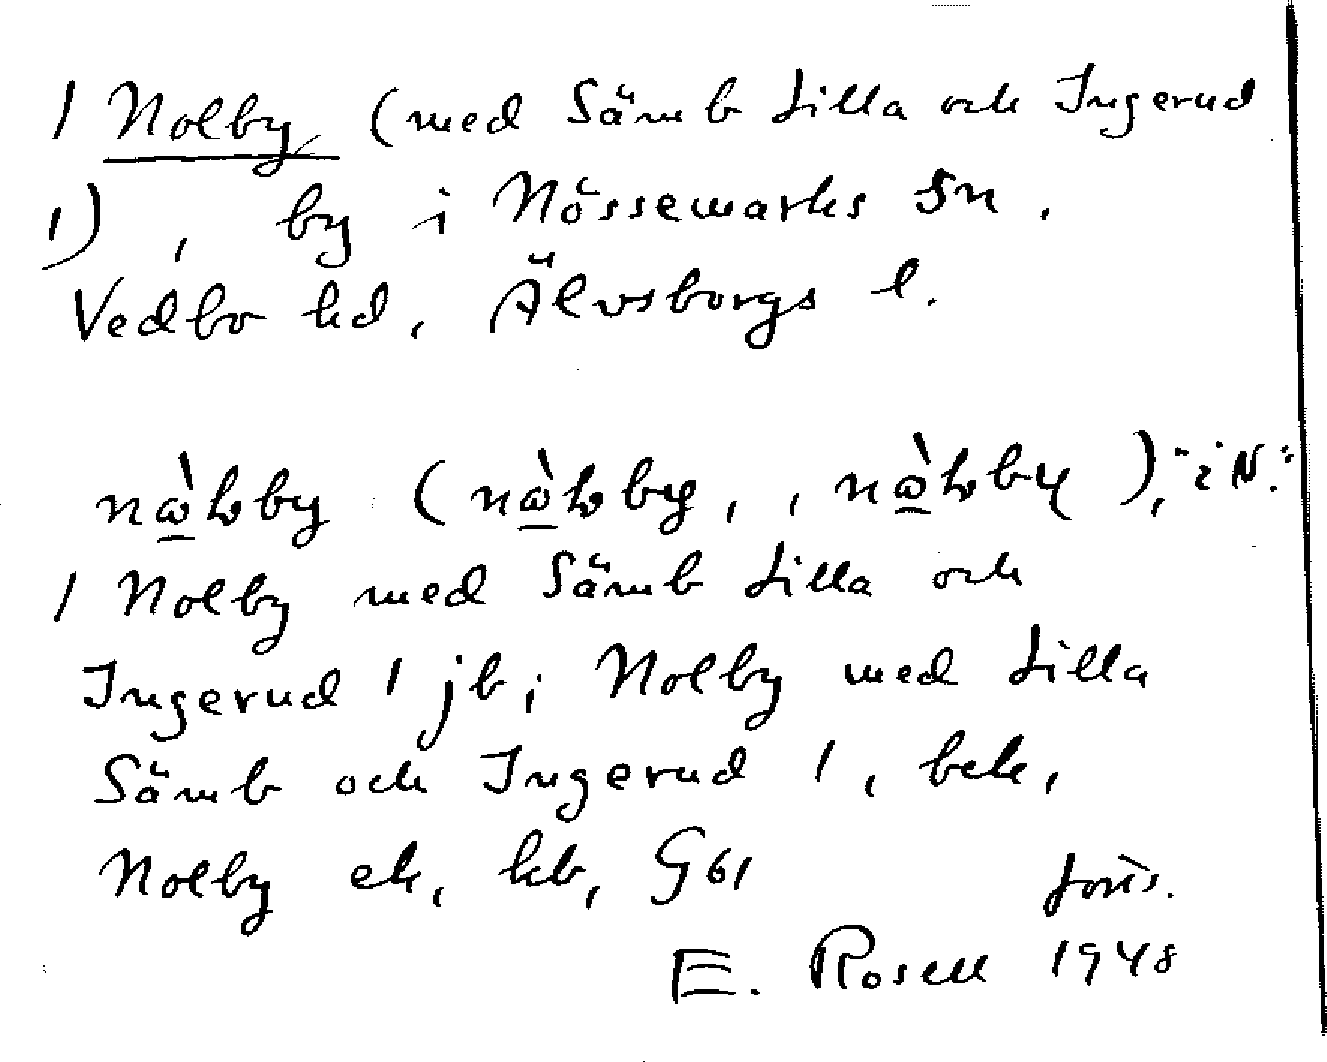 1 Nolby (med Sämb Lilla och Ingerud
1), by i Nössemarks sn,
Vedbo hd, Älvsborgs l.
by ( by, , by ), "i N."
1 Nolby med Sämb Lilla och
Ingerud 1 jb; Nolby med Lilla
Sämb och Ingerud 1, bek,
Nolby ek, kb, G61
forts.
E. Rosell 1948